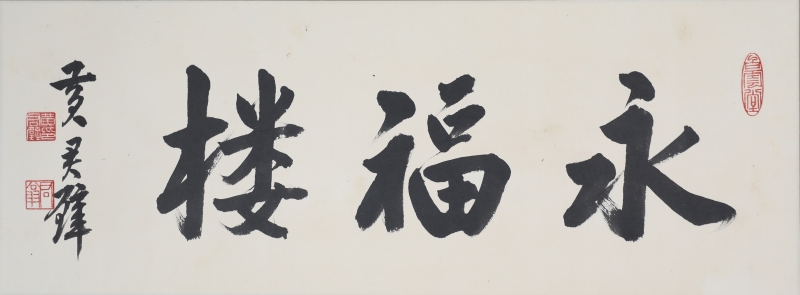 永福楼
黄君璧